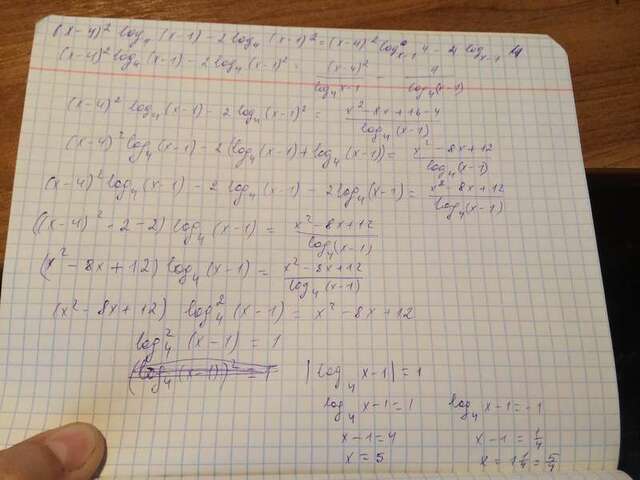 (x-4)² log₄ (x-1) - 2 log₄ (x-1)² = (x-4)² logₓ₋₁ 4 - 4 logₓ₋₁
(x-4)² log₄ (x-1) - 2 log₄ (x-1)² = (x-4)² / log₄ x-1 - 4 / log₄(x-1)
(x-4)² log₄ (x-1) - 2 log₄ (x-1)² = x²-8x+16-4 / log₄ (x-1)
(x-4)² log₄ (x-1) - 2 (log₄ (x-1) + log₄ (x-1)) = x²-8x+12 / log₄ (x-1)
(x-4)² log₄ (x-1) - 2 log₄ (x-1) - 2 log₄ (x-1) = x²-8x+12 / log₄ (x-1)
((x-4)² - 2 - 2) log₄ (x-1) = x²-8x+12 / log₄ (x-1)
(x²-8x+12) log₄ (x-1) = x²-8x+12 / log₄ (x-1)
(x²-8x+12) log₄² (x-1) = x²-8x+12
log₄² (x-1) = 1
(log₄ (x-1))² = 1 |log₄ x-1| = 1
log₄ x-1 = 1 log₄ x-1 = -1
x-1 = 4 x-1 = 1/4
x = 5 x = 1 1/4 = 5/4